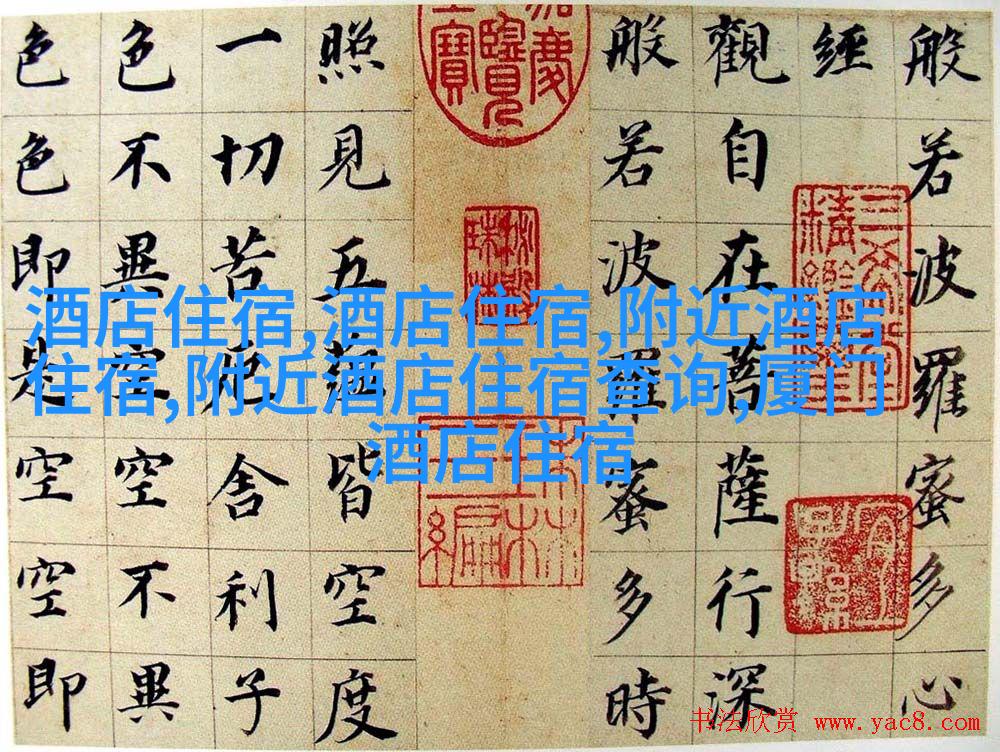 般若波羅蜜多心
經
觀自在菩薩行深
般若波羅蜜多時
照見五蘊皆空度
一切苦厄舍利子
色不異空空不異
色色即是空空即
三希堂精鑑璽
酒店住宿,酒店住宿,附近酒店
住宿,附近酒店住宿查询,厦门
酒店住宿
书法欣赏 www.yac8.com